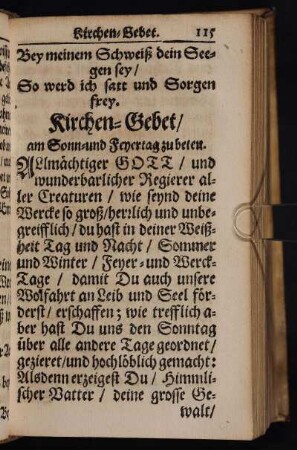 Kirchen-Gebet. 115
Bey meinem Schweiß dein See-
gen sey/
So werd ich satt und Sorgen
frey.
Kirchen-Gebet/
am Sonn-und Feyertag zu beten.
ALlmächtiger GOTT / und
wunderbarlicher Regierer al-
ler Creaturen / wie seynd deine
Wercke so groß/ herrlich und unbe-
greifflich/ du hast in deiner Weiß-
heit Tag und Nacht / Sommer
und Winter / Feyer-und Werck-
Tage / damit Du auch unsere
Wolfahrt an Leib und Seel för-
derst/ erschaffen; wie trefflich a-
ber hast Du uns den Sonntag
über alle andere Tage geordnet/
gezieret/und hochlöblich gemacht:
Alsdenn erzeigest Du / Himmli-
scher Vatter / deine grosse Ge-
walt/